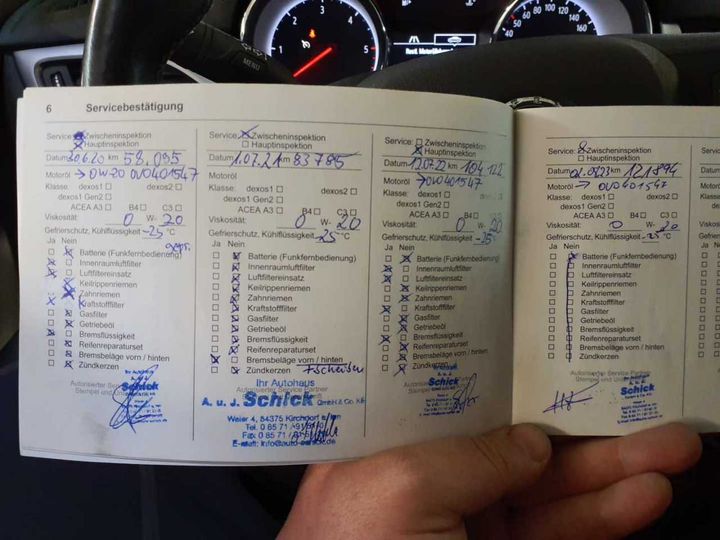 6 Servicebestätigung
Service: Zwischeninspektion
Hauptinspektion
Datum 30.6.20 km 58.095
Motoröl → 0W-20 OV0401547
Klasse: dexos1 dexos2
dexos1 Gen2
ACEA A3 B4 C3
Viskosität: 0 W- 20
Gefrierschutz, Kühlflüssigkeit -25 °C
Ja Nein
Batterie (Funkfernbedienung)
Innenraumluftfilter
Luftfiltereinsatz
Keilrippenriemen
Zahnriemen
Kraftstofffilter
Gasfilter
Getriebeöl
Bremsflüssigkeit
Reifenreparaturset
Bremsbeläge vorn / hinten
Zündkerzen
Ihr Autohaus
A. u. J.
Schick
Service: Zwischeninspektion
Hauptinspektion
Datum 1.07.21 km 83785
Motoröl
Klasse: dexos1 dexos2
dexos1 Gen2
ACEA A3 B4 C3
Viskosität: 0 W- 20
Gefrierschutz, Kühlflüssigkeit -25 °C
Ja Nein
Batterie (Funkfernbedienung)
Innenraumluftfilter
Luftfiltereinsatz
Keilrippenriemen
Zahnriemen
Kraftstofffilter
Gasfilter
Getriebeöl
Bremsflüssigkeit
Reifenreparaturset
Bremsbeläge vorn / hinten
Zündkerzen
Ihr Autohaus
A. u. J. Schick GmbH & Co. KG
Weier 4, 84375 Kirchdorf a. Inn
Tel. 0 85 71
Fax 0 85 71
E-mail:
Service: Zwischeninspektion
Hauptinspektion
Datum 12.07.22 km 104.122
Motoröl → OV0401547
Klasse: dexos1 dexos2
dexos1 Gen2
ACEA A3 B4 C3
Viskosität: 0 W- 20
Gefrierschutz, Kühlflüssigkeit -25 °C
Ja Nein
Batterie (Funkfernbedienung)
Innenraumluftfilter
Luftfiltereinsatz
Keilrippenriemen
Zahnriemen
Kraftstofffilter
Gasfilter
Getriebeöl
Bremsflüssigkeit
Reifenreparaturset
Bremsbeläge vorn / hinten
Zündkerzen
Autorisierter Service Partner
Schick
Service: Zwischeninspektion
Hauptinspektion
Datum km 121894
Motoröl → OV0401547
Klasse: dexos1 dexos2
dexos1 Gen2
ACEA A3 B4 C3
Viskosität: 0 W- 20
Gefrierschutz, Kühlflüssigkeit -25 °C
Ja Nein
Batterie (Funkfernbedienung)
Innenraumluftfilter
Luftfiltereinsatz
Keilrippenriemen
Zahnriemen
Kraftstofffilter
Gasfilter
Getriebeöl
Bremsflüssigkeit
Reifenreparaturset
Bremsbeläge vorn / hinten
Zündkerzen
Autorisierter Service Partner
Schick
MENU
1 2 3 4 5
40 60 80 100 120 140 160